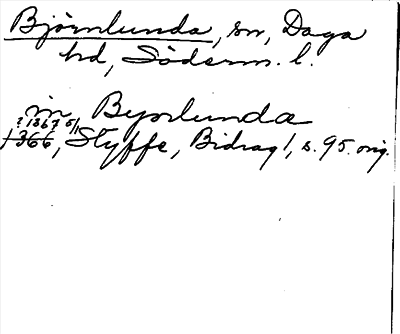 Björnlunda, sn, Daga
hd, Söderm. l.
in Byorlunda
? 1367 5/1
1366, Styffe, Bidrag 1, s. 95. orig.